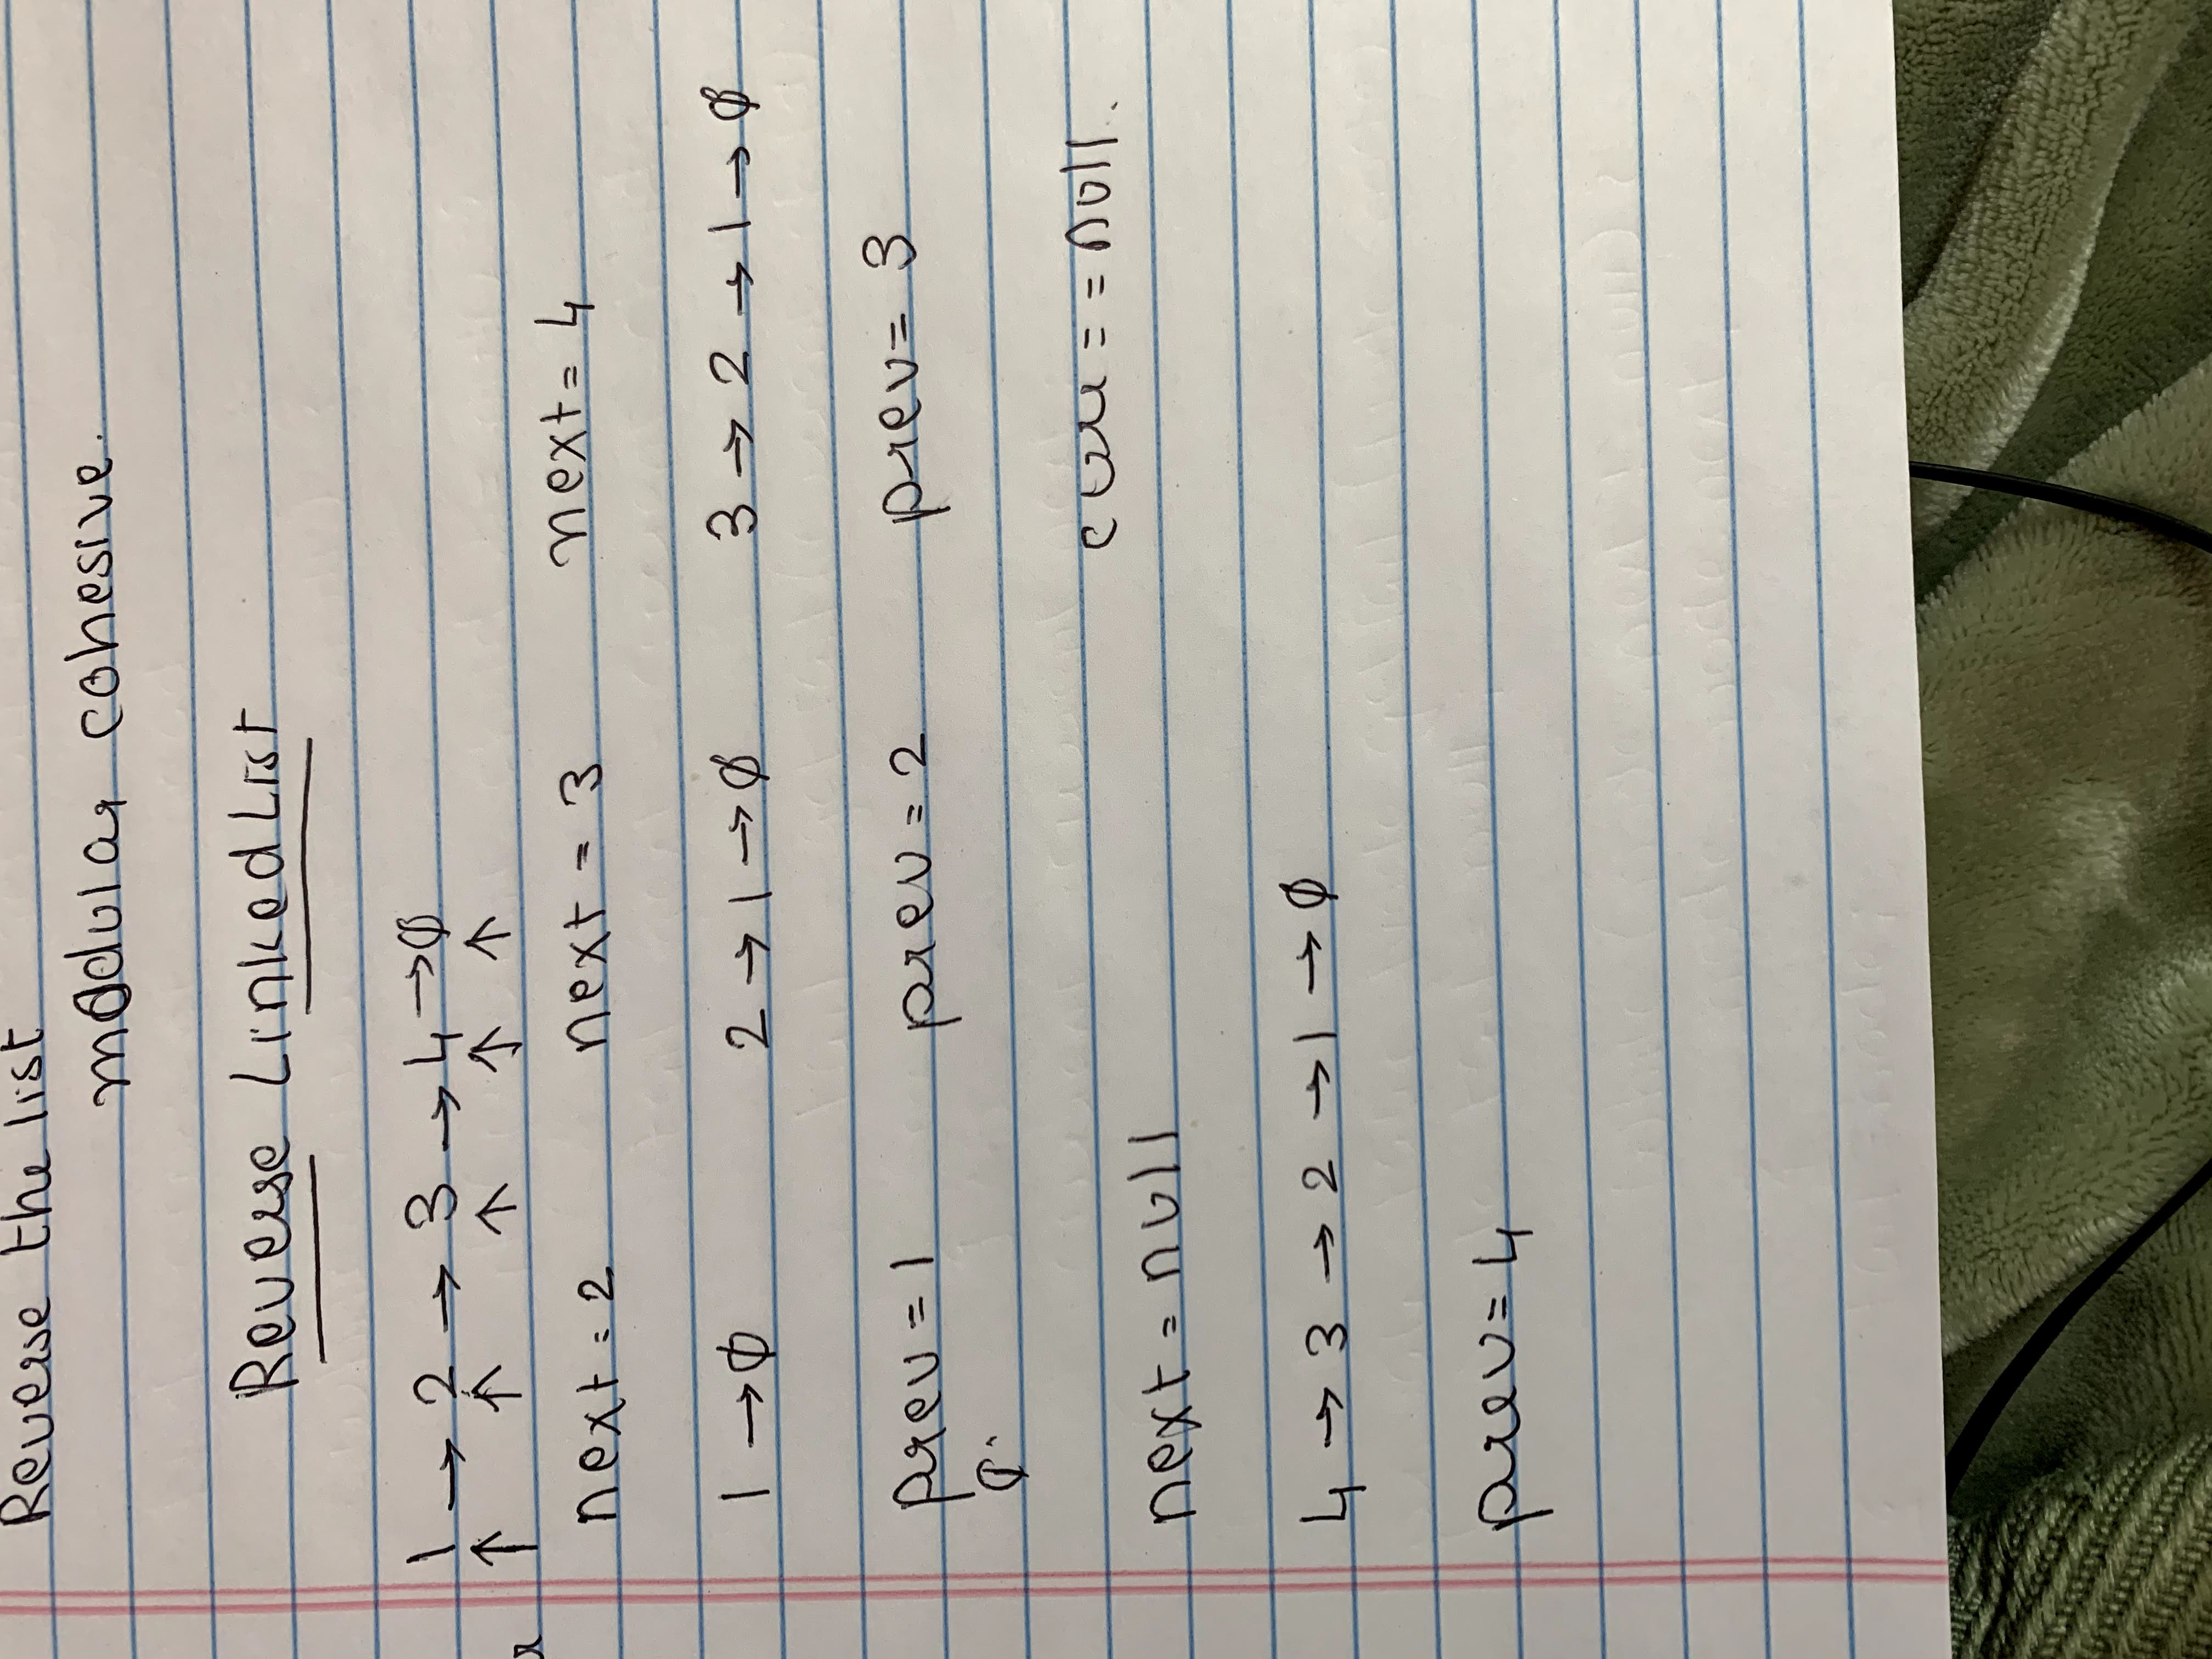 Reverse the list
modular cohesive.
Reverse Linked List
1 → 2 → 3 → 4 → ∅
↑ ↑ ↑ ↑ ↑
next = 2 next = 3 next = 4
1 → ∅ 2 → 1 → ∅ 3 → 2 → 1 → ∅
prev = 1 prev = 2 prev = 3
∅
curr == null.
next = null
4 → 3 → 2 → 1 → ∅
prev = 4